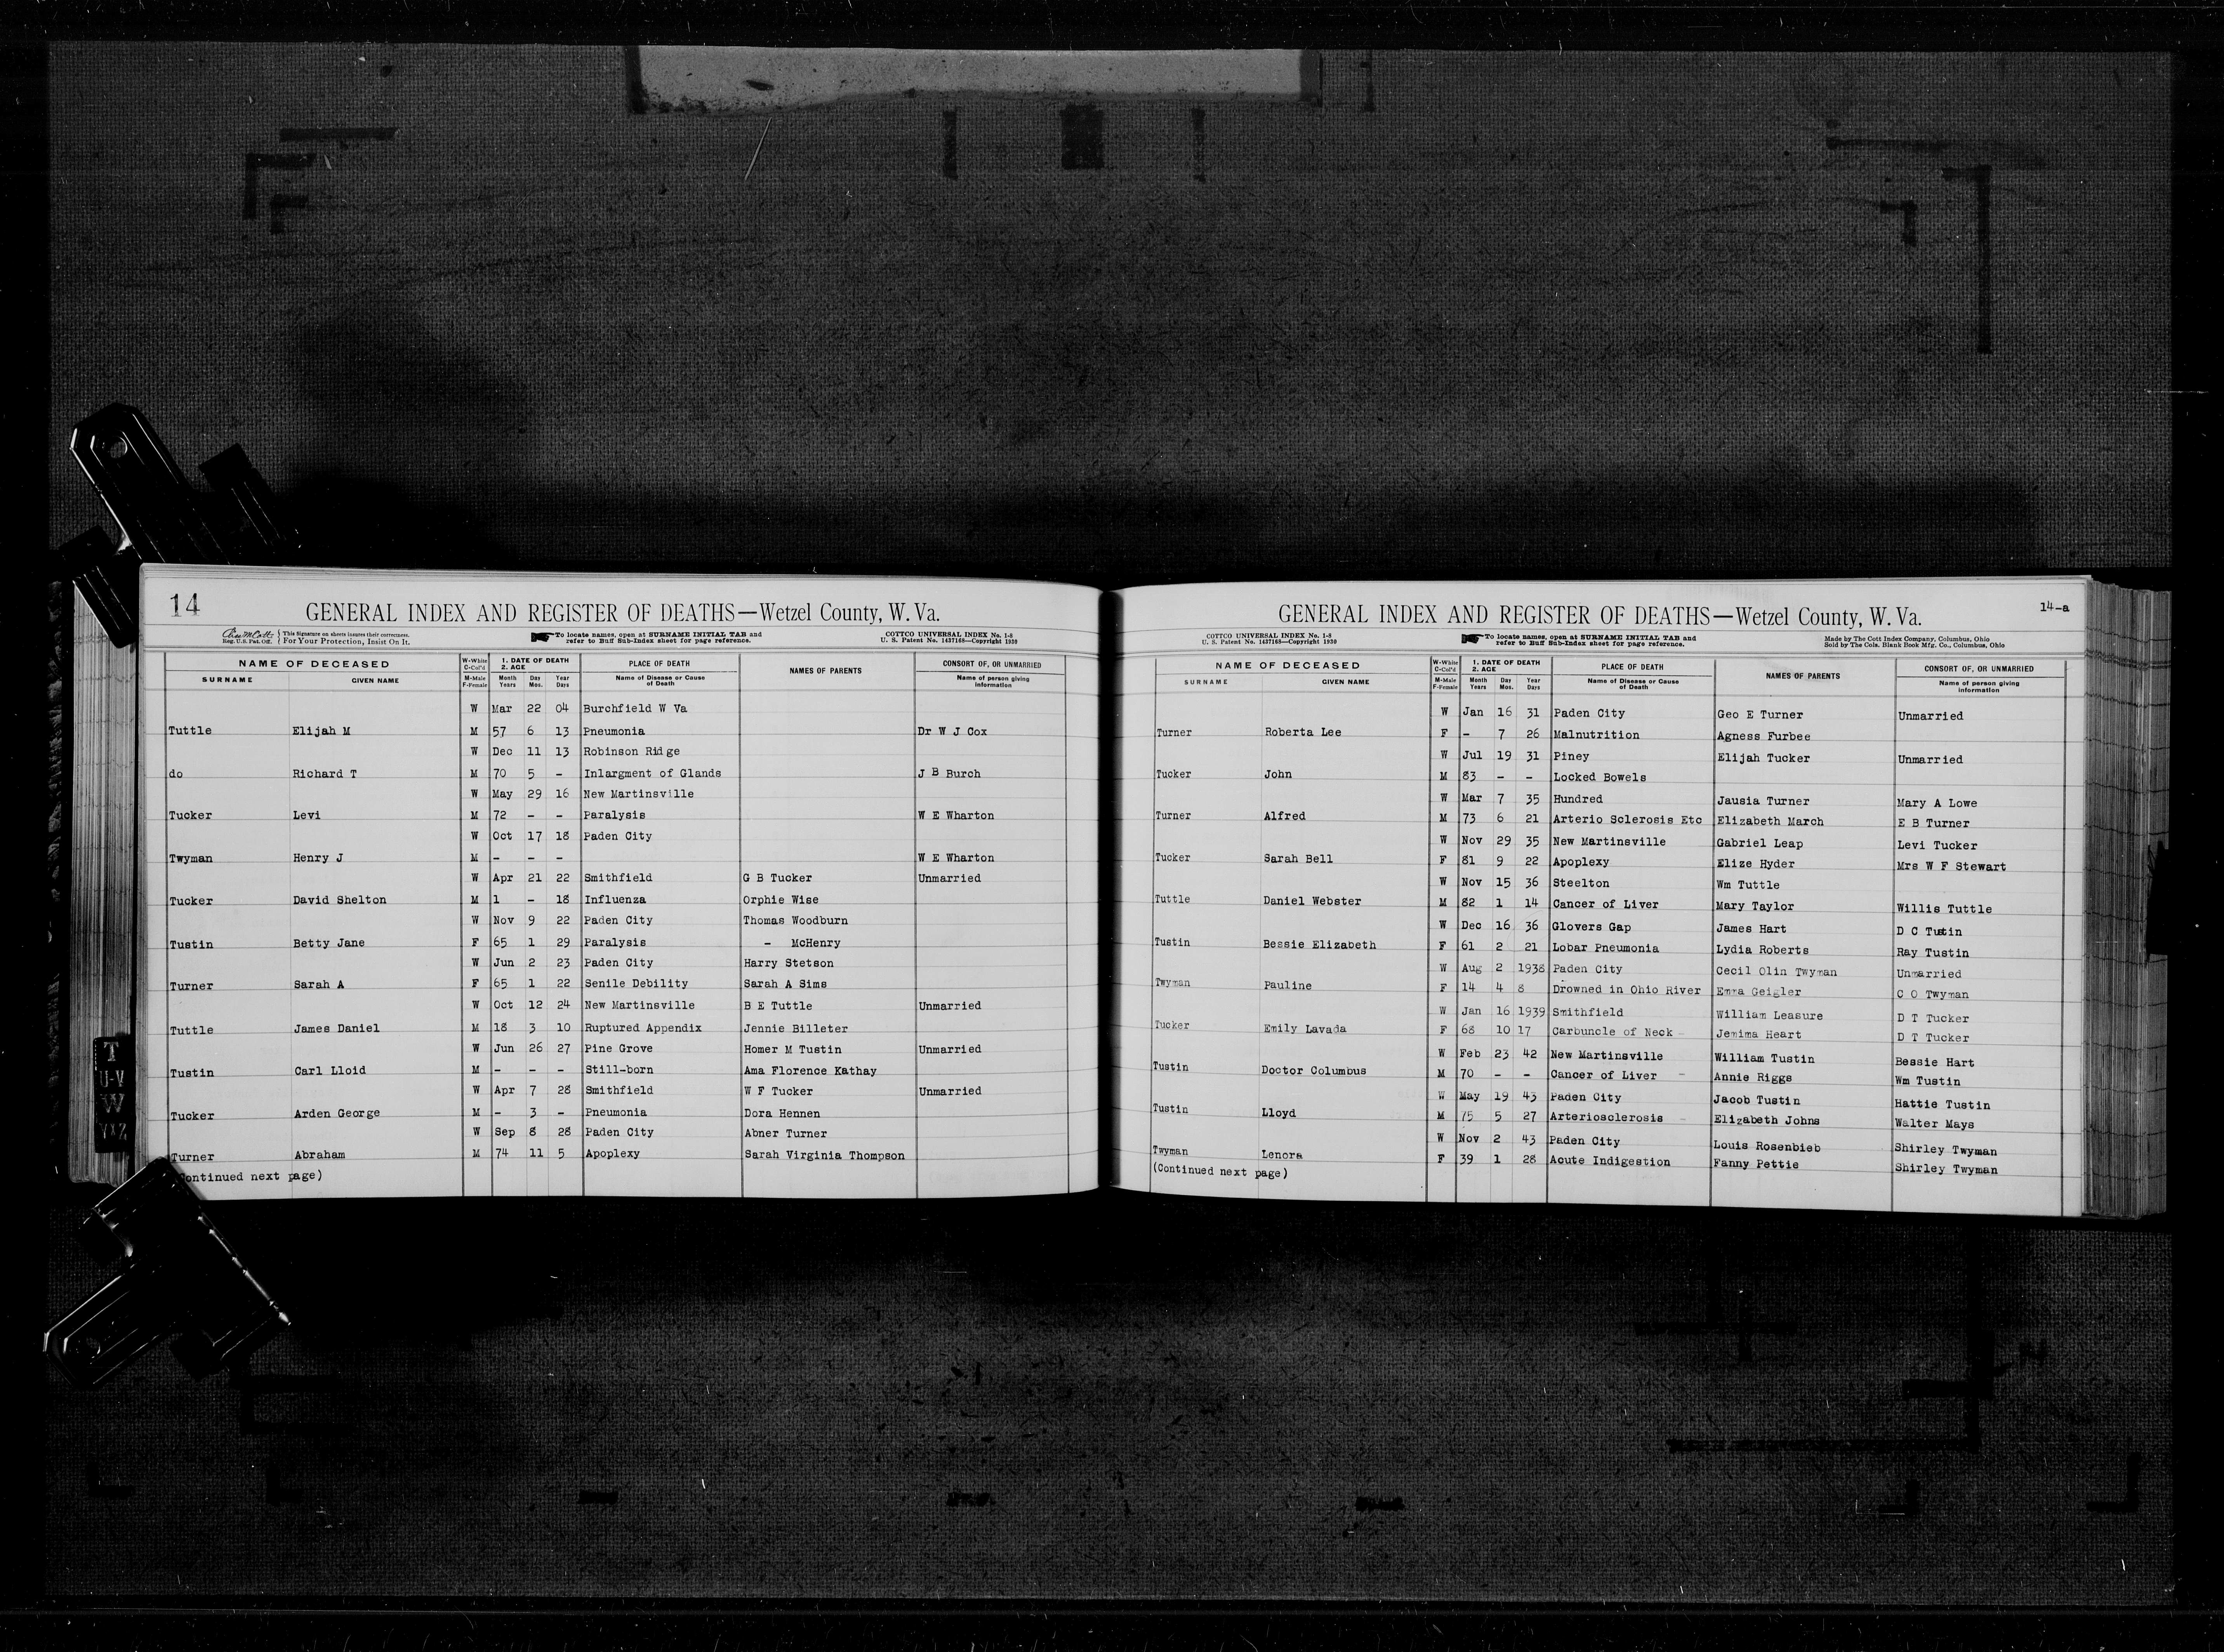 14
GENERAL INDEX AND REGISTER OF DEATHS—Wetzel County, W. Va.
Reg. U.S. Pat. Off. This Signature on sheets insures their correctness. For Your Protection, Insist On It.
To locate names, open at SURNAME INITIAL TAB and refer to Buff Sub-Index sheet for page reference.
COTTCO UNIVERSAL INDEX No. 1-8
U. S. Patent No. 1437168—Copyright 1930
NAME OF DECEASED W-White C-Col'd 1. DATE OF DEATH 2. AGE PLACE OF DEATH NAMES OF PARENTS CONSORT OF, OR UNMARRIED
SURNAME GIVEN NAME M-Male F-Female Month Years Day Mos. Year Days Name of Disease or Cause of Death Name of person giving information
W Mar 22 04 Burchfield W Va
Tuttle Elijah M M 57 6 13 Pneumonia Dr W J Cox
W Dec 11 13 Robinson Ridge
do Richard T M 70 5 - Inlargment of Glands J B Burch
W May 29 16 New Martinsville
Tucker Levi M 72 - - Paralysis W E Wharton
W Oct 17 18 Paden City
Twyman Henry J M - - - W E Wharton
W Apr 21 22 Smithfield G B Tucker Unmarried
Tucker David Shelton M 1 - 18 Influenza Orphie Wise
W Nov 9 22 Paden City Thomas Woodburn
Tustin Betty Jane F 65 1 29 Paralysis - McHenry
W Jun 2 23 Paden City Harry Stetson
Turner Sarah A F 65 1 22 Senile Debility Sarah A Sims
W Oct 12 24 New Martinsville B E Tuttle Unmarried
Tuttle James Daniel M 18 3 10 Ruptured Appendix Jennie Billeter
W Jun 26 27 Pine Grove Homer M Tustin Unmarried
Tustin Carl Lloid M - - - Still-born Ama Florence Kathay
W Apr 7 28 Smithfield W F Tucker Unmarried
Tucker Arden George M - 3 - Pneumonia Dora Hennen
W Sep 8 28 Paden City Abner Turner
Turner Abraham M 74 11 5 Apoplexy Sarah Virginia Thompson
ontinued next page)
T
U-V
W
YXZ
GENERAL INDEX AND REGISTER OF DEATHS—Wetzel County, W. Va.
14-a
COTTCO UNIVERSAL INDEX No. 1-8
U. S. Patent No. 1437168—Copyright 1930
To locate names, open at SURNAME INITIAL TAB and refer to Buff Sub-Index sheet for page reference.
Made by The Cott Index Company, Columbus, Ohio
Sold by The Cols. Blank Book Mfg. Co., Columbus, Ohio
NAME OF DECEASED W-White C-Col'd 1. DATE OF DEATH 2. AGE PLACE OF DEATH NAMES OF PARENTS CONSORT OF, OR UNMARRIED
SURNAME GIVEN NAME M-Male F-Female Month Years Day Mos. Year Days Name of Disease or Cause of Death Name of person giving information
W Jan 16 31 Paden City Geo E Turner Unmarried
Turner Roberta Lee F - 7 26 Malnutrition Agness Furbee
W Jul 19 31 Piney Elijah Tucker Unmarried
Tucker John M 83 - - Locked Bowels
W Mar 7 35 Hundred Jausia Turner Mary A Lowe
Turner Alfred M 73 6 21 Arterio Sclerosis Etc Elizabeth March E B Turner
W Nov 29 35 New Martinsville Gabriel Leap Levi Tucker
Tucker Sarah Bell F 81 9 22 Apoplexy Elize Hyder Mrs W F Stewart
W Nov 15 36 Steelton Wm Tuttle
Tuttle Daniel Webster M 82 1 14 Cancer of Liver Mary Taylor Willis Tuttle
W Dec 16 36 Glovers Gap James Hart D C Tustin
Tustin Bessie Elizabeth F 61 2 21 Lobar Pneumonia Lydia Roberts Ray Tustin
W Aug 2 1938 Paden City Cecil Olin Twyman Unmarried
Twyman Pauline F 14 4 8 Drowned in Ohio River Emma Geigler C O Twyman
W Jan 16 1939 Smithfield William Leasure D T Tucker
Tucker Emily Lavada F 68 10 17 Carbuncle of Neck - Jemima Heart D T Tucker
W Feb 23 42 New Martinsville William Tustin Bessie Hart
Tustin Doctor Columbus M 70 - - Cancer of Liver - Annie Riggs Wm Tustin
W May 19 43 Paden City Jacob Tustin Hattie Tustin
Tustin Lloyd M 75 5 27 Arteriosclerosis - Elizabeth Johns Walter Mays
W Nov 2 43 Paden City Louis Rosenbieb Shirley Twyman
Twyman Lenora F 39 1 28 Acute Indigestion Fanny Pettie Shirley Twyman
(Continued next page)